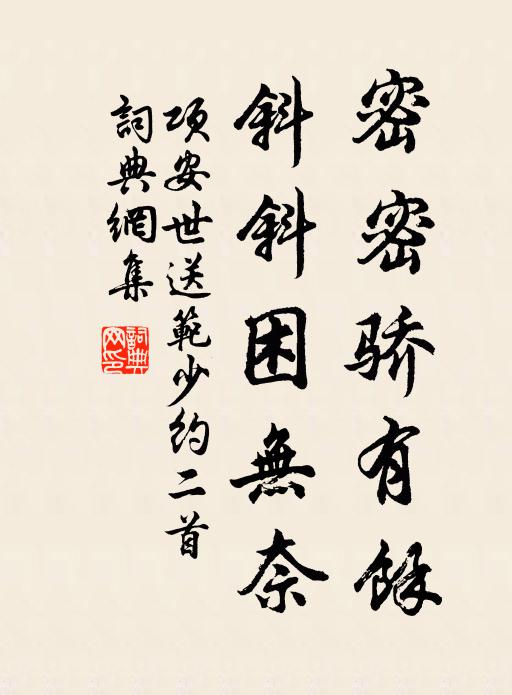 密密骄有餘
斜斜困無奈
项安世送範少约二首
詞典網集
詞典
网印